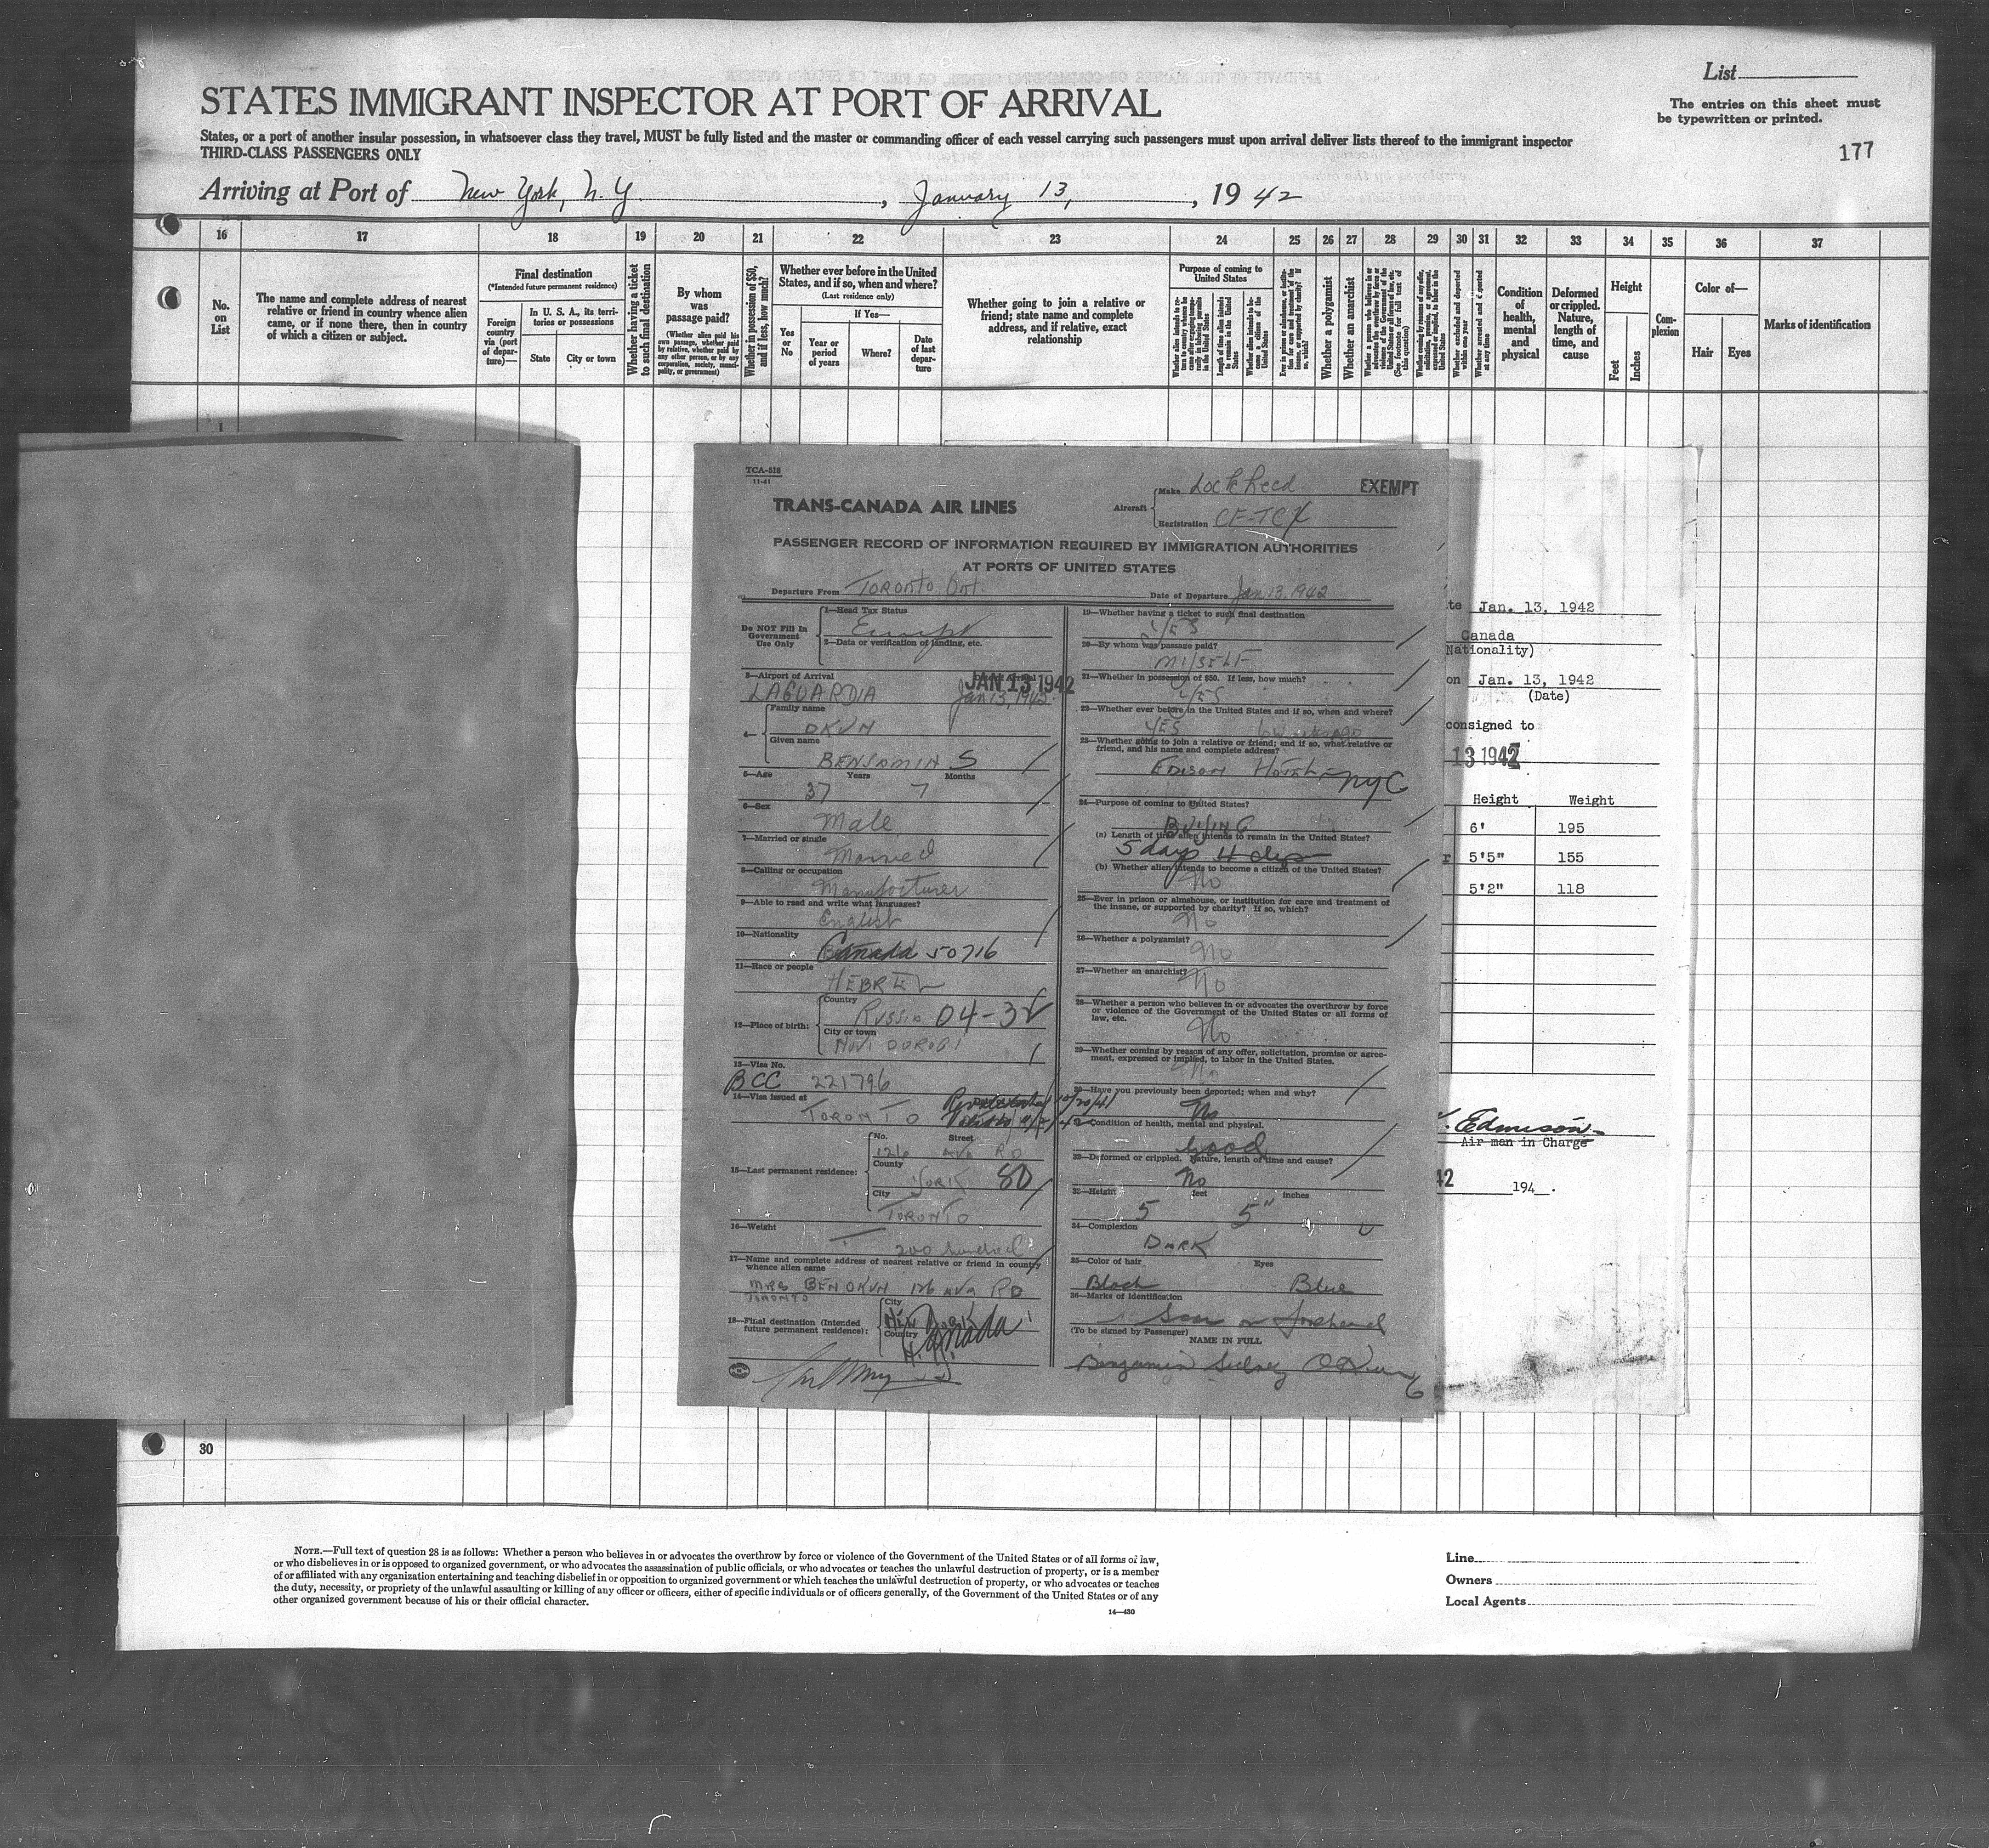 List
STATES IMMIGRANT INSPECTOR AT PORT OF ARRIVAL
The entries on this sheet must
be typewritten or printed.
States, or a port of another insular possession, in whatsoever class they travel, MUST be fully listed and the master or commanding officer of each vessel carrying such passengers must upon arrival deliver lists thereof to the immigrant inspector
THIRD-CLASS PASSENGERS ONLY
177
Arriving at Port of New York, N.Y. , January 13, , 1942
16 17 18 19 20 21 22 23 24 25 26 27 28 29 30 31 32 33 34 35 36 37
No. on List
The name and complete address of nearest
relative or friend in country whence alien
came, or if none there, then in country
of which a citizen or subject.
Final destination
(*Intended future permanent residence)
Foreign country via (port of departure)—
In U. S. A., its territories or possessions
State
City or town
Whether having a ticket to such final destination
By whom was passage paid?
(Whether alien paid his own passage, whether paid by relative, whether paid by any other person, or by any corporation, society, municipality, or government)
Whether in possession of $50, and if less, how much?
Whether ever before in the United
States, and if so, when and where?
(Last residence only)
If Yes—
Yes or No
Year or period of years
Where?
Date of last departure
Whether going to join a relative or
friend; state name and complete
address, and if relative, exact
relationship
Purpose of coming to United States
Whether alien intends to become a citizen of the United States
Length of time alien intends to remain in the United States
Whether a polygamist
Whether an anarchist
Condition of health, mental and physical
Deformed or crippled. Nature, length of time, and cause
Height
Feet
Inches
Complexion
Color of—
Hair
Eyes
Marks of identification
TCA-518
11-41
TRANS-CANADA AIR LINES
Aircraft
Make Lockheed
Registration CF-TCX
EXEMPT
PASSENGER RECORD OF INFORMATION REQUIRED BY IMMIGRATION AUTHORITIES
AT PORTS OF UNITED STATES
Departure From Toronto Ont. Date of Departure Jan 13, 1942
Do NOT Fill In
Government
Use Only
1—Head Tax Status
Exempt
2—Data or verification of landing, etc.
3—Airport of Arrival
LAGUARDIA Jan 13, 1942
JAN 13 1942
4—
Family name
OKUN
Given name
BENJAMIN S
5—Age Years Months
37 7
6—Sex
Male
7—Married or single
Married
8—Calling or occupation
Manufacturer
9—Able to read and write what languages?
English
10—Nationality
Canada 50716
11—Race or people
HEBREW
12—Place of birth:
Country
RUSSIA 04-3
City or town
13—Visa No.
BCC 221796
14—Visa issued at
TORONTO
10/20/41
15—Last permanent residence:
No. Street
126 AVA RD
County
YORK 80
City
TORONTO
16—Weight
200 hundred
17—Name and complete address of nearest relative or friend in country
whence alien came
MRS BEN OKUN 126 AVA RD
TORONTO
18—Final destination (Intended
future permanent residence):
City
NEW YORK
Country
Canada
19—Whether having a ticket to such final destination
YES
20—By whom was passage paid?
MYSELF
21—Whether in possession of $50. If less, how much?
YES
22—Whether ever before in the United States and if so, when and where?
YES
23—Whether going to join a relative or friend; and if so, what relative or
friend, and his name and complete address?
EDISON HOTEL NYC
24—Purpose of coming to United States?
BUYING
(a) Length of time alien intends to remain in the United States?
5 days 4 days
(b) Whether alien intends to become a citizen of the United States?
No
25—Ever in prison or almshouse, or institution for care and treatment of
the insane, or supported by charity? If so, which?
No
26—Whether a polygamist?
No
27—Whether an anarchist?
No
28—Whether a person who believes in or advocates the overthrow by force
or violence of the Government of the United States or all forms of
law, etc.
No
29—Whether coming by reason of any offer, solicitation, promise or agree-
ment, expressed or implied, to labor in the United States.
No
30—Have you previously been deported; when and why?
No
Condition of health, mental and physical.
Good
32—Deformed or crippled. Nature, length of time and cause?
No
33—Height feet inches
5 5"
34—Complexion
DARK
35—Color of hair Eyes
Black Blue
36—Marks of identification
Scar on forehead
(To be signed by Passenger)
NAME IN FULL
Benjamin Sidney Okun
te Jan. 13, 1942
Canada
Nationality)
on Jan. 13, 1942
(Date)
consigned to
13 1942
Height Weight
6' 195
r 5'5" 155
5'2" 118
. Edmison
Air man in Charge
42 194 .
30
NOTE.—Full text of question 28 is as follows: Whether a person who believes in or advocates the overthrow by force or violence of the Government of the United States or of all forms of law,
or who disbelieves in or is opposed to organized government, or who advocates the assassination of public officials, or who advocates or teaches the unlawful destruction of property, or is a member
of or affiliated with any organization entertaining and teaching disbelief in or opposition to organized government or which teaches the unlawful destruction of property, or who advocates or teaches
the duty, necessity, or propriety of the unlawful assaulting or killing of any officer or officers, either of specific individuals or of officers generally, of the Government of the United States or of any
other organized government because of his or their official character.
14—430
Line
Owners
Local Agents